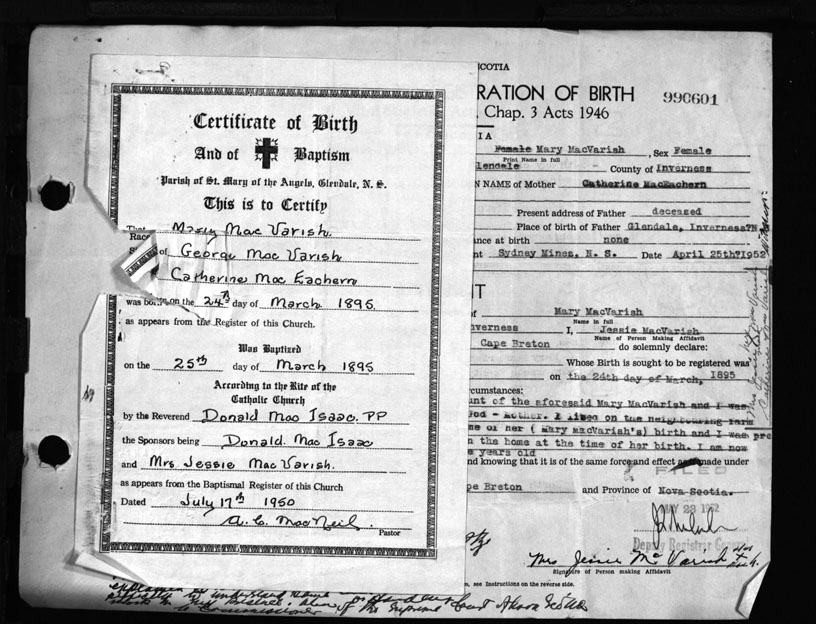 Certificate of Birth
And of Baptism
Parish of St. Mary of the Angels, Glendale, N. S.
This is to Certify
That Mary Mac Varish
Race
of George Mac Varish
Catherine Mac Eachern
was born on the 24th day of March 1895.
as appears from the Register of this Church.
Was Baptized
on the 25th day of March 1895
According to the Rite of the
Catholic Church
by the Reverend Donald Mac Isaac. PP
the Sponsors being Donald Mac Isaac
and Mrs Jessie Mac Varish.
as appears from the Baptismal Register of this Church
Dated July 17th 1950
A. C. MacNeil.
Pastor
SCOTIA
RATION OF BIRTH 990601
Chap. 3 Acts 1946
IA
Female Mary MacVarish, Sex Female
Print Name in full
lendale County of Inverness
N NAME of Mother Catherine MacEachern
Present address of Father deceased
Place of birth of Father Glendale, Inverness, N.
nce at birth none
nt Sydney Mines, N. S. Date April 25th, 1952
NT
of Mary MacVarish
Name in full
nverness I, Jessie MacVarish
Name of Person Making Affidavit
Cape Breton do solemnly declare:
Whose Birth is sought to be registered was
on the 24th day of March, 1895
rcumstances:
unt of the aforesaid Mary MacVarish and I was
God - Mother. I lived on the neighbouring farm
me of her ( Mary MacVarish's) birth and I was pre
n the home at the time of her birth. I am now
e years old
nd knowing that it is of the same force and effect as made under
FILED
ape Breton and Province of Nova Scotia.
MAY 23 1952
Deputy Registrar General
Mrs Jessie McVarish
her X mark
Signature of Person making Affidavit
m, see Instructions on the reverse side.
of the Supreme Court Nova Scotia